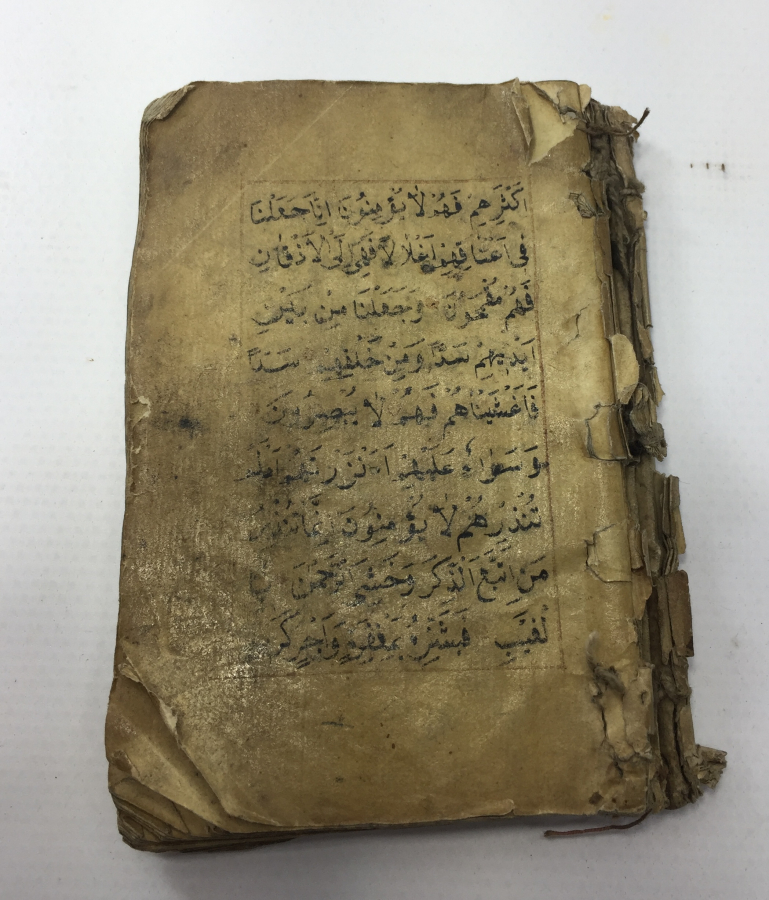 اَكْثَرِهِمْ فَهُمْ لَا يُؤْمِنُونَ اِنَّا جَعَلْنَا
فِى اَعْنَاقِهِمْ اَغْلَالًا فَهِىَ اِلَى الْاَذْقَانِ
فَهُمْ مُقْمَحُونَ وَجَعَلْنَا مِنْ بَيْنِ
اَيْدِيهِمْ سَدًّا وَمِنْ خَلْفِهِمْ سَدًّا
فَاَغْشَيْنَاهُمْ فَهُمْ لَا يُبْصِرُونَ
وَسَوَاءٌ عَلَيْهِمْ ءَاَنْذَرْتَهُمْ اَمْ لَمْ
تُنْذِرْهُمْ لَا يُؤْمِنُونَ اِنَّمَا تُنْذِرُ
مَنِ اتَّبَعَ الذِّكْرَ وَخَشِىَ الرَّحْمٰنَ بِا
لْغَيْبِ فَبَشِّرْهُ بِمَغْفِرَةٍ وَاَجْرٍ كَرِ